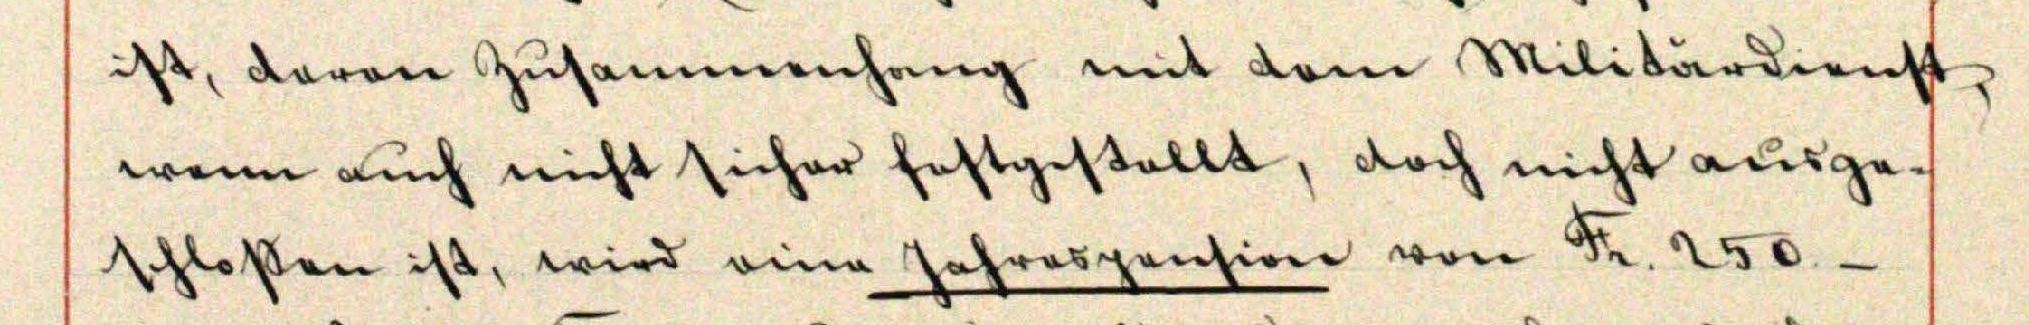 ist, deren Zusammenhang mit dem Militärdienst,
wenn auch nicht sicher festgestellt, doch nicht ausge-
schloßen ist, wird eine Jahrespension von Fr. 250.–